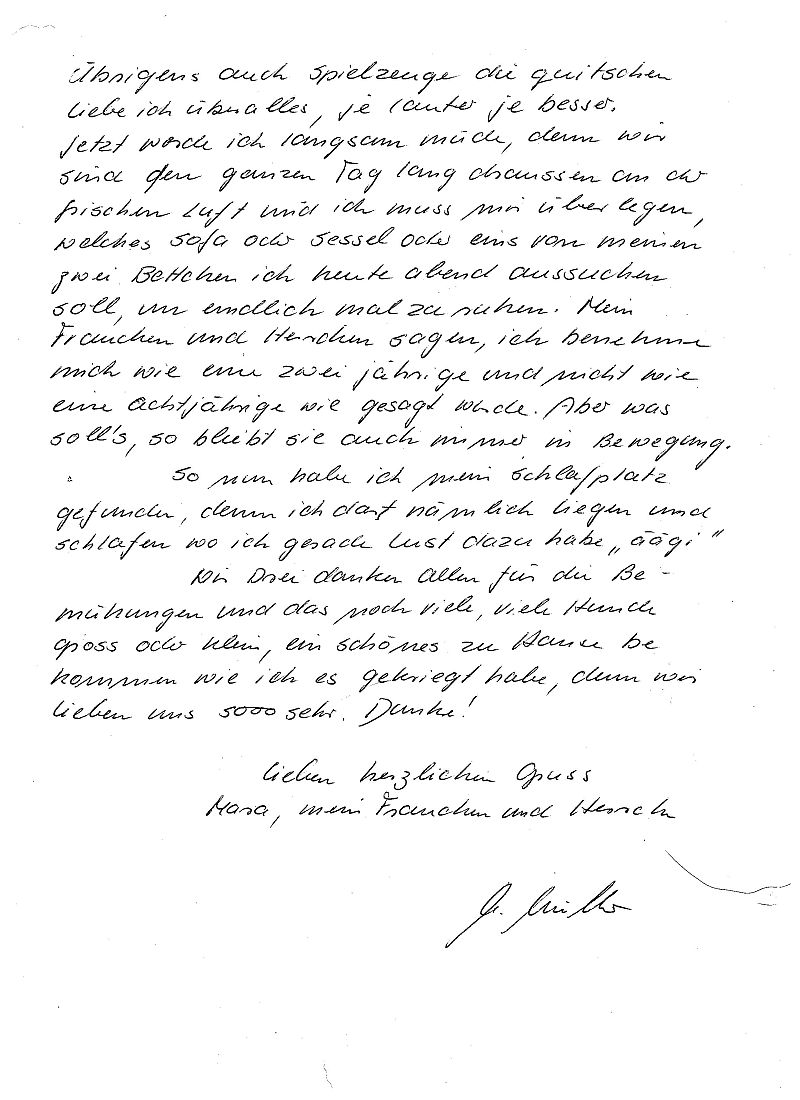 Übrigens auch Spielzeuge die quitschen
liebe ich über alles, je lauter je besser.
Jetzt werde ich langsam müde, denn wir
sind den ganzen Tag lang draussen an der
frischen Luft und ich muss mir überlegen,
welches Sofa oder Sessel oder eins von meinen
zwei Bettchen ich heute abend aussuchen
soll, um endlich mal zu ruhen. Mein
Frauchen und Herrchen sagen, ich benehme
mich wie eine zwei jährige und nicht wie
eine Achtjährige wie gesagt wurde. Aber was
soll's, so bleibt sie auch immer in Bewegung.
So nun habe ich mein Schlafplatz
gefunden, denn ich darf nämlich liegen und
schlafen wo ich gerade Lust dazu habe „äägi"
Wir Drei danken Allen für die Be-
mühungen und das noch viele, viele Hunde
gross oder klein, ein schönes zu Hause be
kommen wie ich es gekriegt habe, denn wir
lieben uns sooo sehr. Danke!
lieben herzlichen Gruss
Mara, mein Frauchen und Herrchen